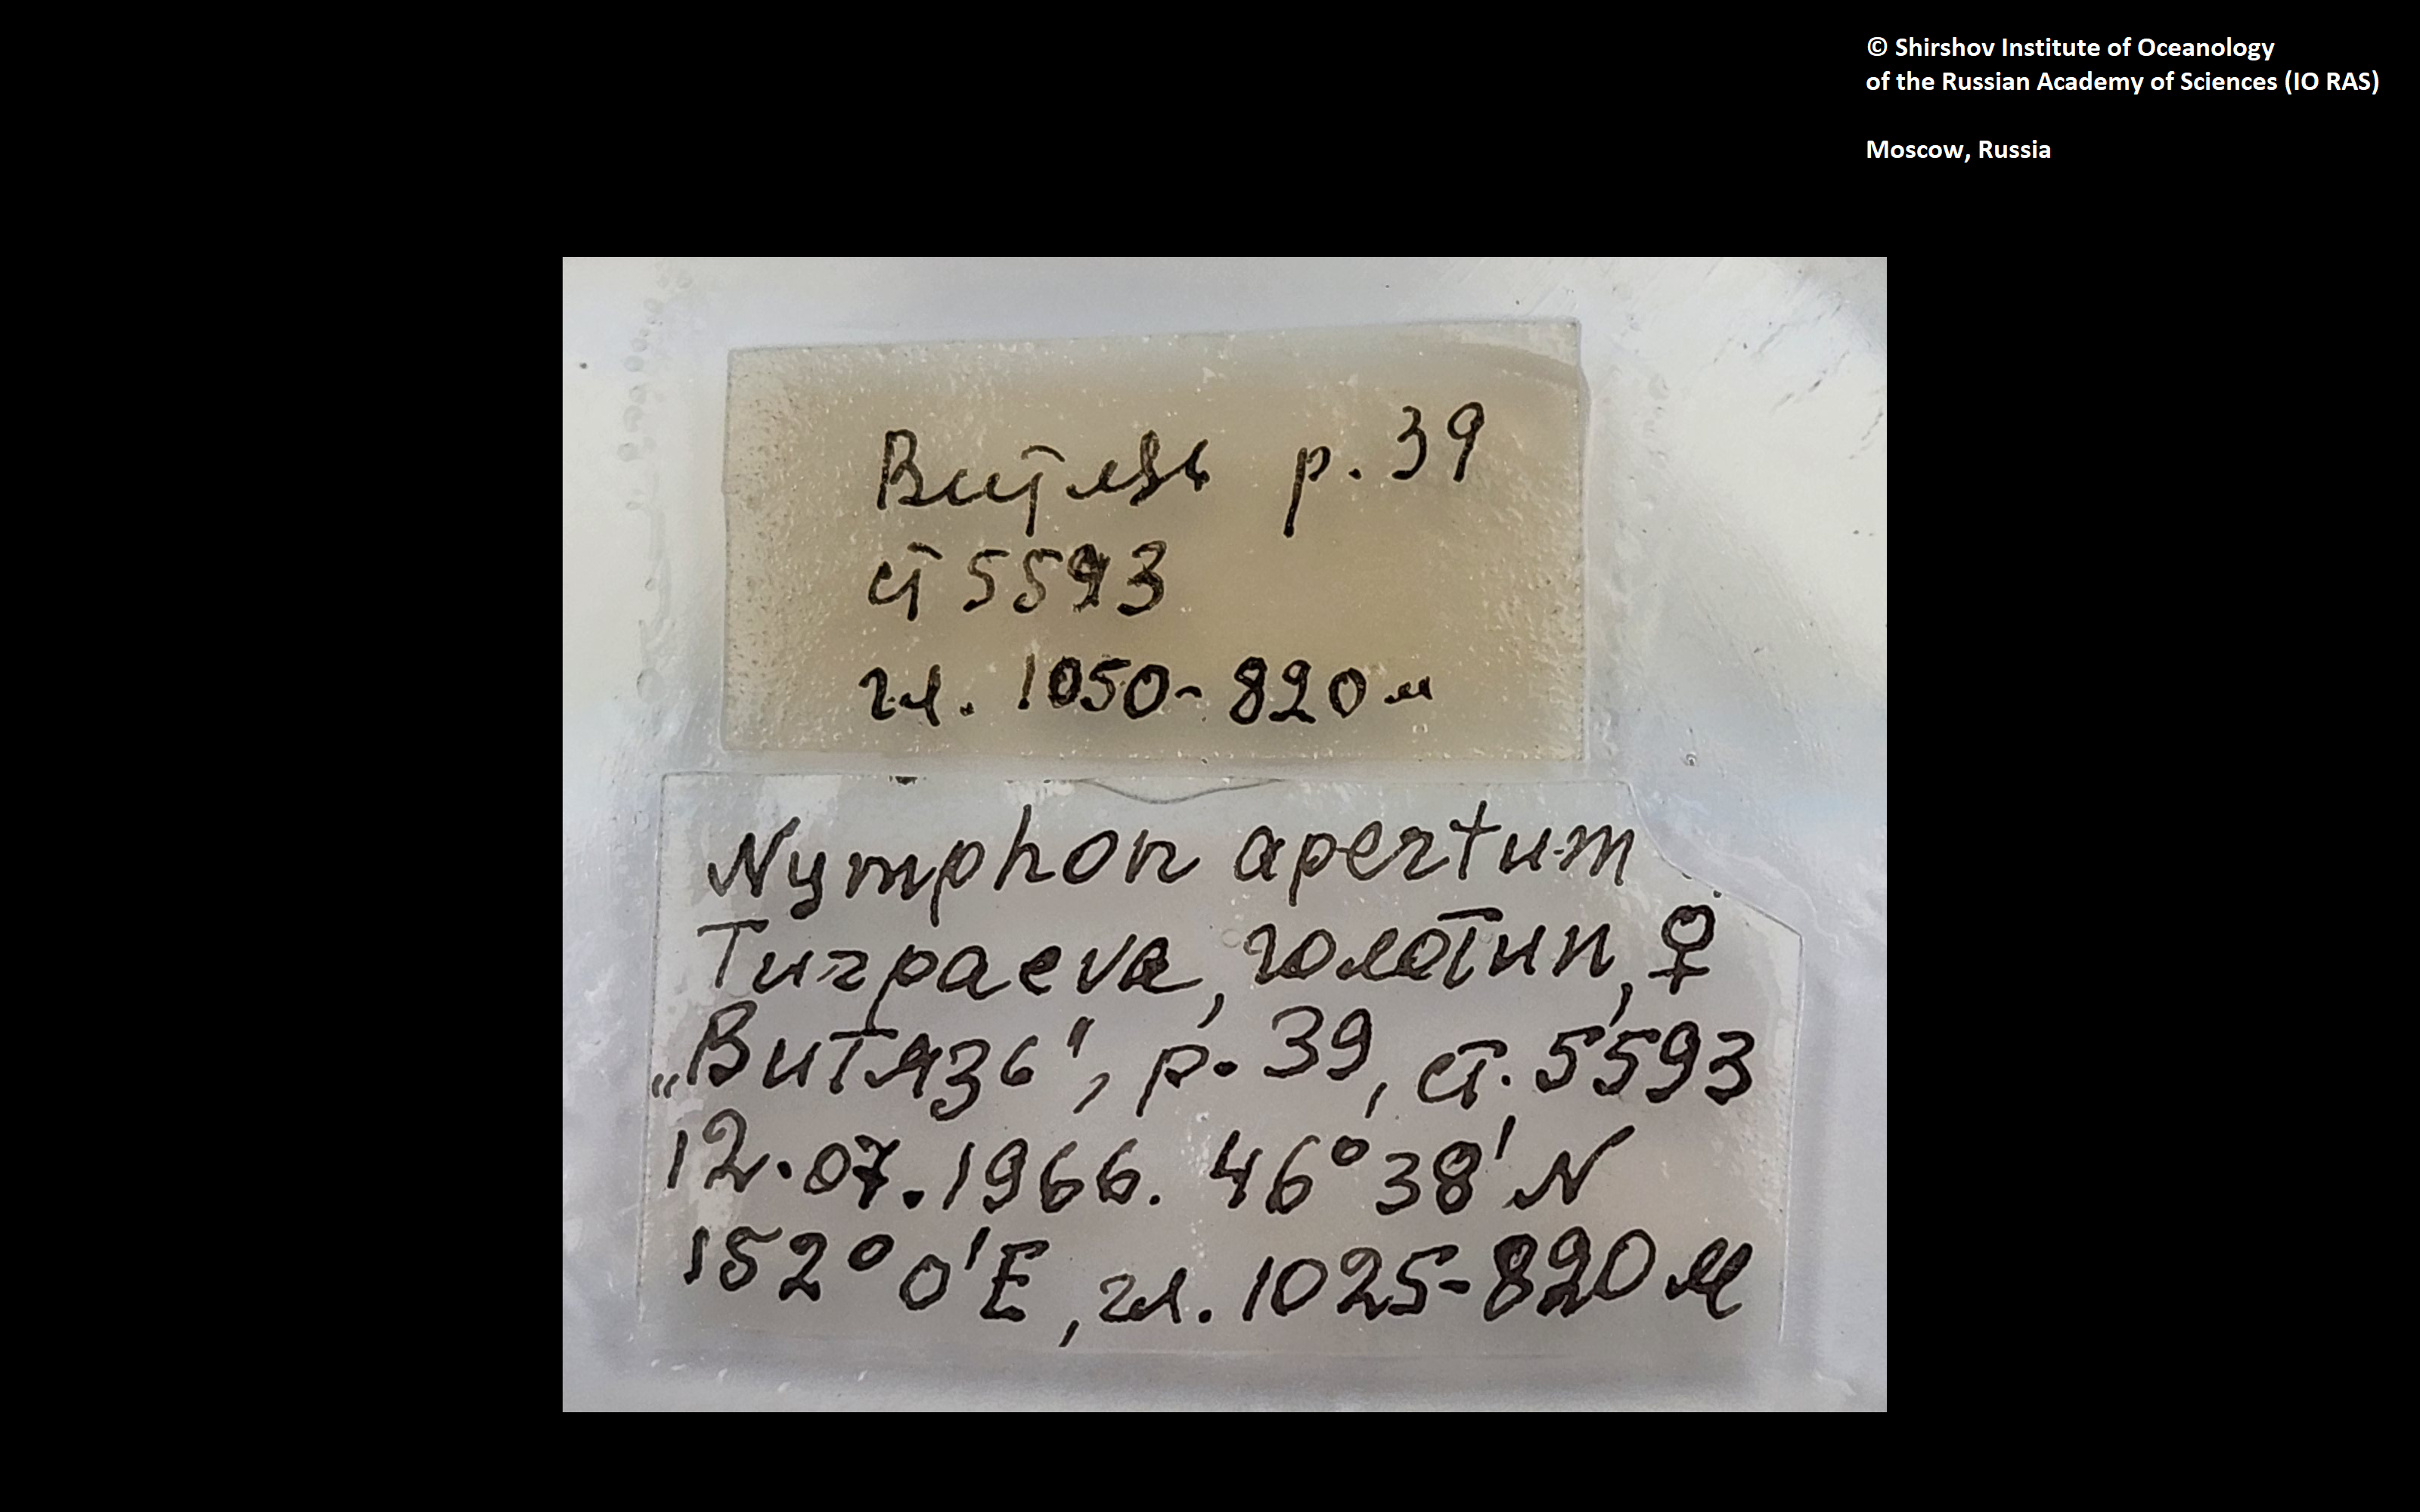 © Shirshov Institute of Oceanology
of the Russian Academy of Sciences (IO RAS)
Moscow, Russia
Витязь р. 39
ст 5593
гл. 1050-820 м
Nymphon apertum
Turpaeva, голотип, ♀
„Витязь", р. 39, ст. 5593
12.07.1966. 46°38'N
152°0'E, гл. 1025-820 м